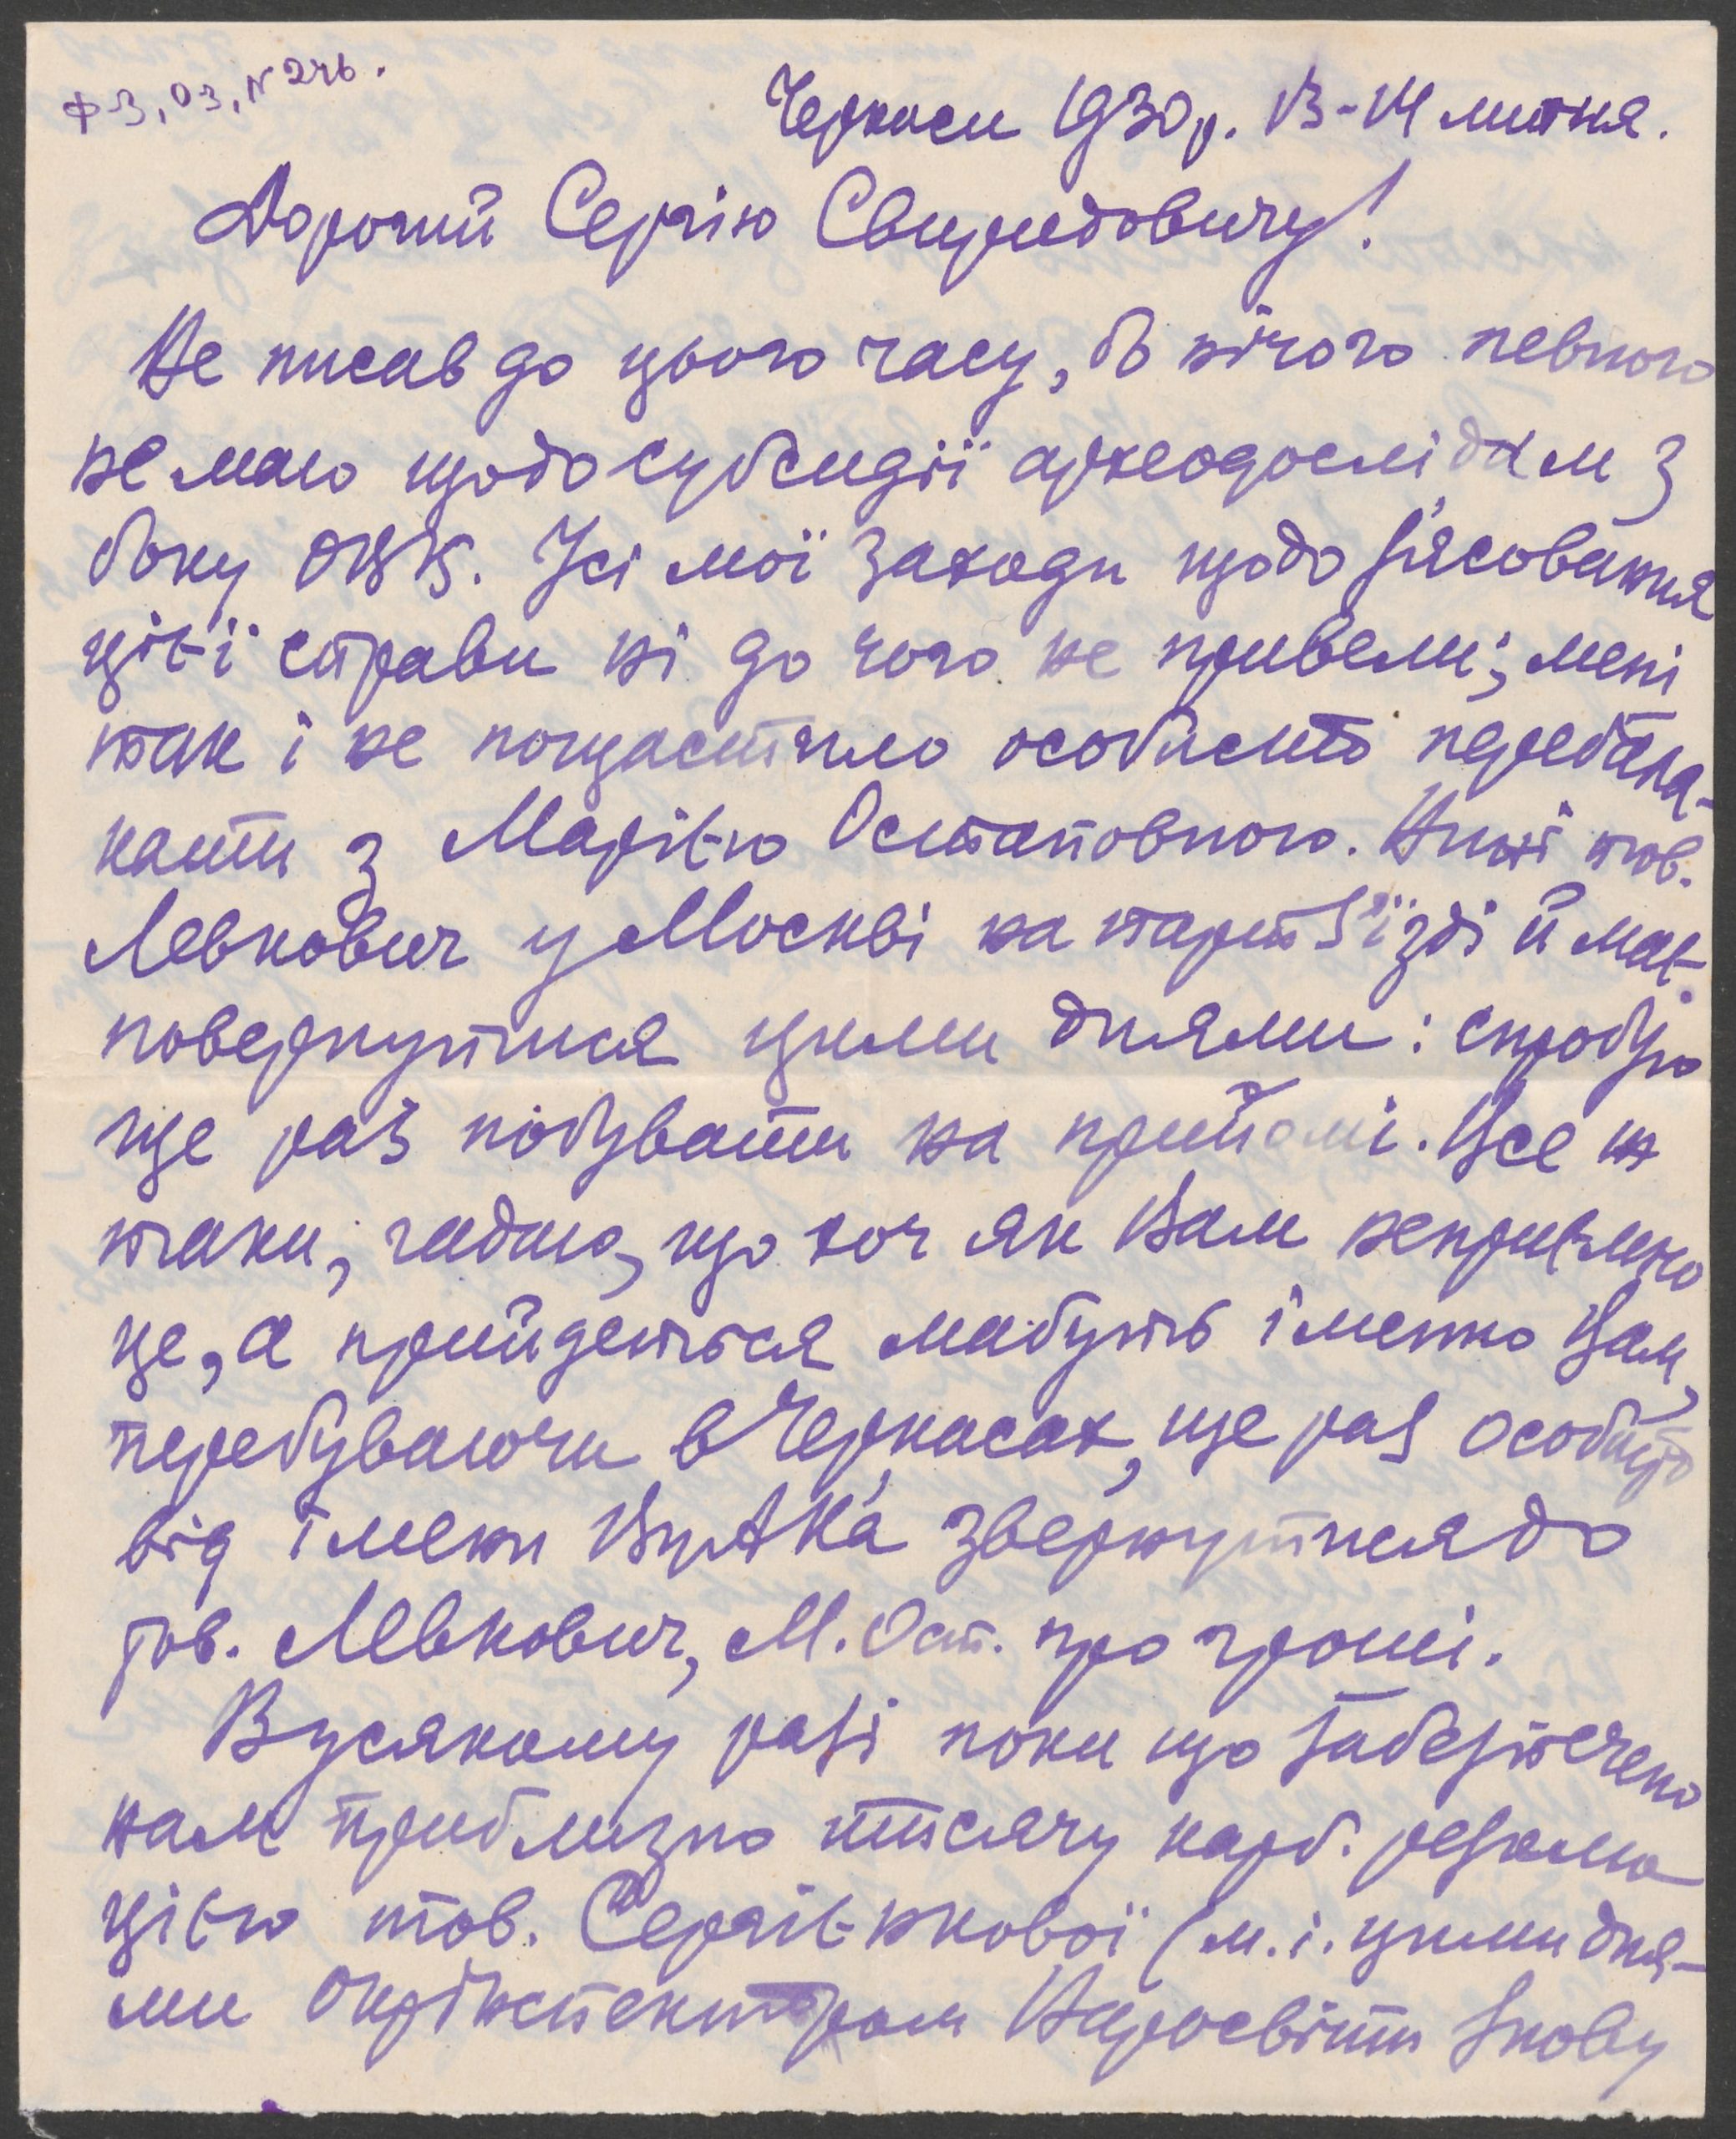 Ф-3, 03, № 246.
Черкаси 1930 р. 13-14 липня.
Дорогий Сергію Свиридовичу!
Не писав до цього часу, бо нічого певного
не маю щодо субсидії археодослідам з
боку ОВК. Усі мої заходи щодо з'ясовання
цієї справи ні до чого не привели; мені
так і не пощастило особисто перебала-
кати з Марією Остаповною. Нині тов.
Левкович у Москві на партз'їзді й має
повернутися цими днями: спробую
ще раз побувати на прийомі. Все ж
таки, гадаю, що хоч як Вам неприємно
це, а прийдеться мабуть іменно Вам,
перебуваючи в Черкасах, ще раз особисто
від імени ВУАК'а звернутися до
тов. Левкович, М. Ост. про гроші.
В усякому разі поки що забезпечено
нам приблизно тисячу карб. резолю
цією тов. Сергієнкової (м. і. цими дня-
ми Окрінспектором Наросвіти знову